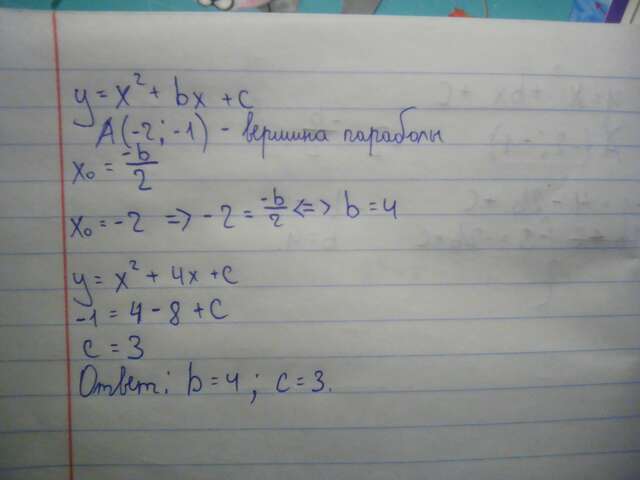 y = x² + bx + c
A(-2; -1) - вершина параболы
x₀ = -b/2
x₀ = -2 => -2 = -b/2 <=> b = 4
y = x² + 4x + c
-1 = 4 - 8 + c
c = 3
Ответ: b = 4; c = 3.